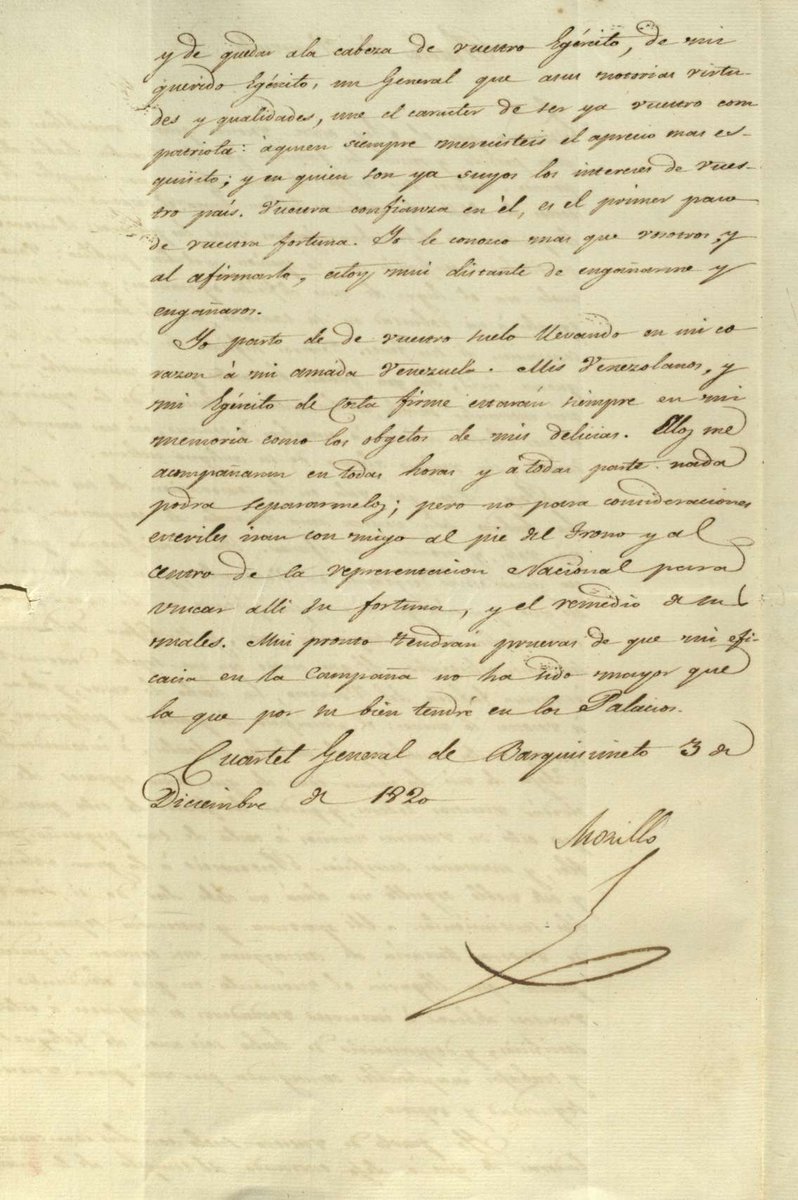 y de quedar ala cabeza de vuestro Egército, de mi
querido Egército, un General que asus notorias virtu-
des y qualidades, une el caracter de ser ya vuestro com
patriota: àquien siempre merecisteis el aprecio mas es-
quisito; y en quien son ya suyos los intereses de vues-
tro païs. Vuestra confianza en èl, es el primer paso
de vuestra fortuna. Yo le conosco mas que vosotros, y
al afirmarlo, estoy mui distante de engañarme y
engañaros.
Yo parto de de vuestro suelo llevando en mi co
razon à mi amada Venezuela. Mis Venezolanos, y
mi Egército de Costa firme estarán siempre en mi
memoria como los obgetos de mis delicias. Ellos me
acompañaran en todas horas y à todas parte. nada
podra separarmelos; pero no para consideraciones
esteriles iran con migo al pie del Trono y al
centro de la representacion Nacional para
buscar alli su fortuna, y el remedio de sus
males. Mui pronto tendrán pruevas de que mi efi-
cacia en la Campaña no ha sido mayor que
la que por su bien tendré en los Palacios.
Cuartel General de Barquisimeto 3 de
Diciembre de 1820
Morillo